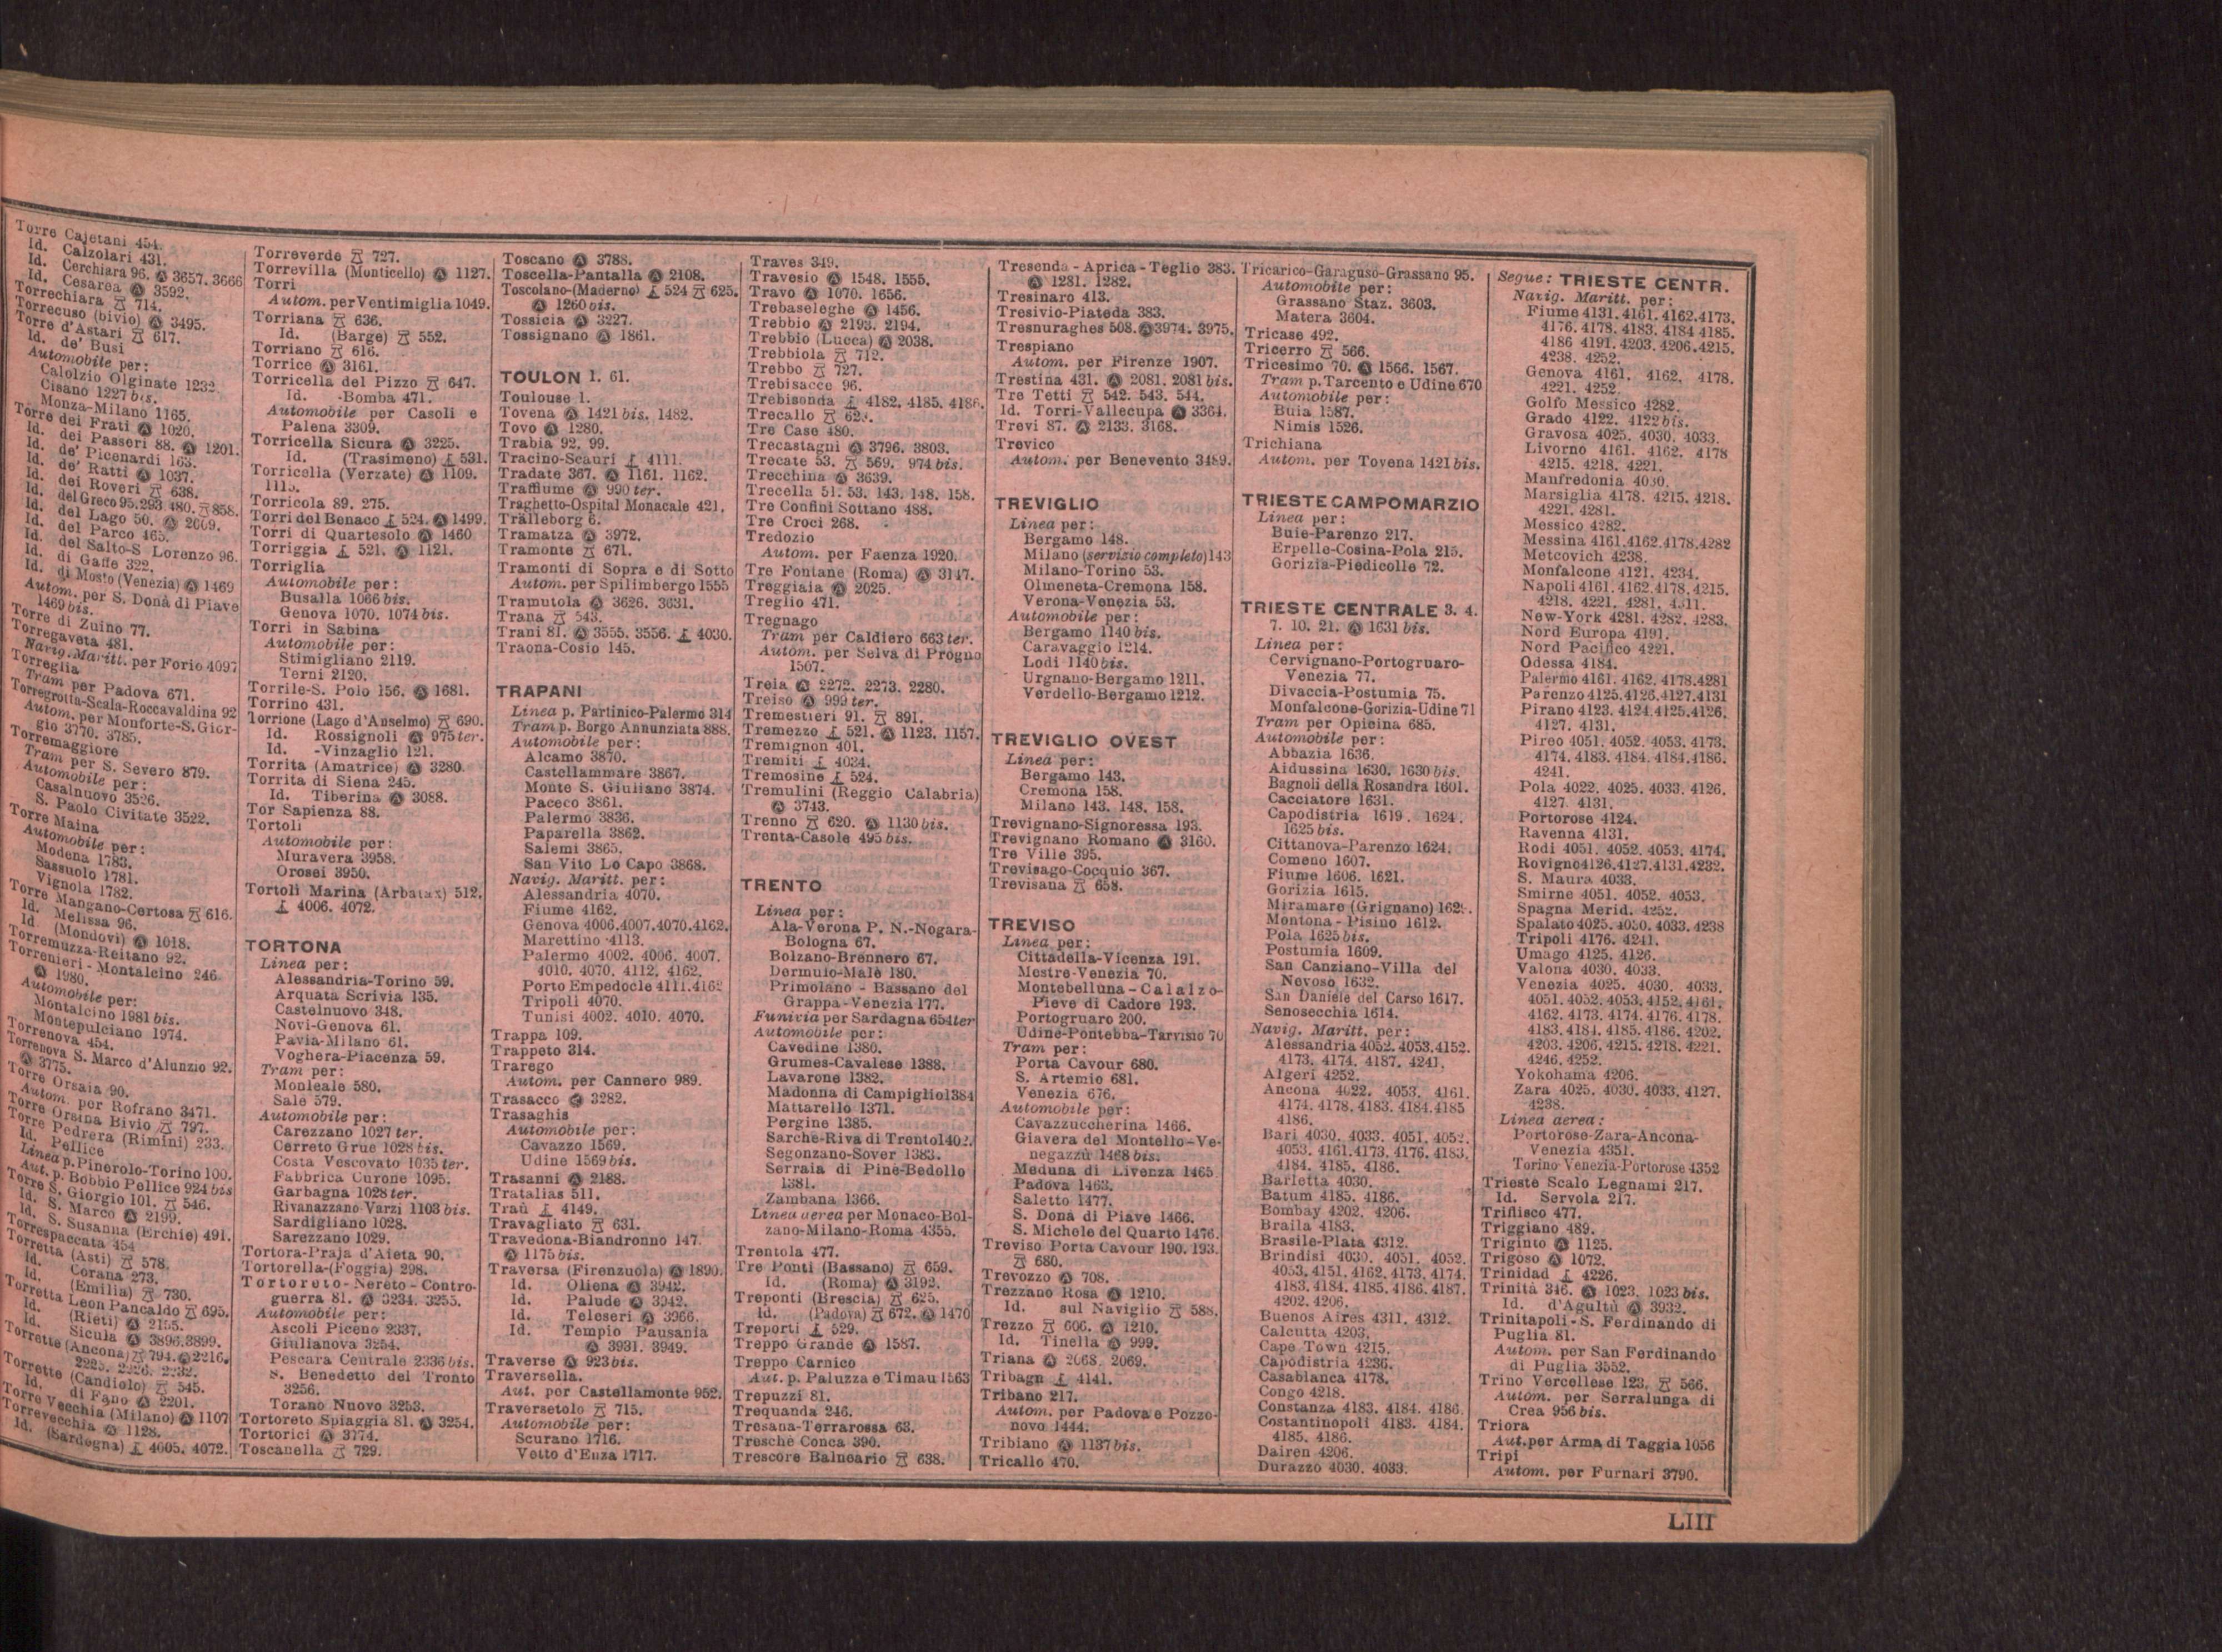 Torre Cajetani 454.
Id. Calzolari 431.
Id. Cerchiara 96. 3657. 3666
Id. Cesarea 3592.
Torrechiara 714.
Torrecuso (bivio) 3495.
Torre d'Astari 617.
Id. de' Busi
Automobile per:
Calolzio Olginate 1232.
Cisano 1227 bis.
Monza-Milano 1165.
Torre dei Frati 1020.
Id. dei Passeri 88. 1201.
Id. de' Picenardi 163.
Id. de' Ratti 1037.
Id. dei Roveri 638.
Id. del Greco 95. 293 480. 858.
Id. del Lago 50. 2009.
Id. del Parco 465.
Id. del Salto-S Lorenzo 96.
Id. di Gaffe 322.
Id. di Mosto (Venezia) 1469
Autom. per S. Donà di Piave
1469 bis.
Torre di Zuino 77.
Torregaveta 481.
Navig. Maritt. per Forio 4097
Torreglia
Tram per Padova 671.
Torregrotta-Scala-Roccavaldina 92
Autom. per Monforte-S. Gior-
gio 3770. 3785.
Torremaggiore
Tram per S. Severo 879.
Automobile per:
Casalnuovo 3526.
S. Paolo Civitate 3522.
Torre Maina
Automobile per:
Modena 1783.
Sassuolo 1781.
Vignola 1782.
Torre Mangano-Certosa 616.
Id. Melissa 96.
Id (Mondovì) 1018.
Torremuzza-Reitano 92.
Torrenieri - Montalcino 246
1980.
Automobile per:
Montalcino 1981 bis.
Montepulciano 1974.
Torrenova 454.
Torrenova S. Marco d'Alunzio 92.
3775.
Torre Orsaia 90.
Autom. per Rofrano 3471.
Torre Orsina Bivio 797.
Torre Pedrera (Rimini) 233.
Id. Pellice
Linea p. Pinerolo-Torino 100.
Aut. p. Bobbio Pellice 924 bis
Torre S. Giorgio 101. 546.
Id. S. Marco 2199.
Id. S. Susanna (Erchie) 491.
Torrespaccata 454
Torretta (Asti) 578.
Id. Corana 273.
Id. (Emilia) 730.
Torretta Leon Pancaldo 695.
Id. (Rieti) 2155.
Id. Sicula 3896.3899.
Torrette (Ancona) 794. 2216.
2225. 2226. 2232.
Torrette (Candiolo) 545.
Id. di Fano 2201.
Torre Vecchia (Milano) 1107
Torrevecchia 1128.
Id. (Sardegna) 4005. 4072.
Torreverde 727.
Torrevilla (Monticello) 1127.
Torri
Autom. per Ventimiglia 1049.
Torriana 636.
Id. (Barge) 552.
Torriano 616.
Torrice 3161.
Torricella del Pizzo 647.
Id. -Bomba 471.
Automobile per Casoli e
Palena 3309.
Torricella Sicura 3225.
Id. (Trasimeno) 531.
Torricella (Verzate) 1109.
1115.
Torricola 89. 275.
Torri del Benaco 524. 1499.
Torri di Quartesolo 1460
Torriggia 521. 1121.
Torriglia
Automobile per:
Busalla 1066 bis.
Genova 1070. 1074 bis.
Torri in Sabina
Automobile per:
Stimigliano 2119.
Terni 2120.
Torrile-S. Polo 156. 1681.
Torrino 431.
Torrione (Lago d'Anselmo) 690.
Id. Rossignoli 975 ter.
Id. -Vinzaglio 121.
Torrita (Amatrice) 3280.
Torrita di Siena 245.
Id. Tiberina 3088.
Tor Sapienza 88.
Tortolì
Automobile per:
Muravera 3958.
Orosei 3950.
Tortolì Marina (Arbatax) 512.
4006. 4072.
TORTONA
Linea per:
Alessandria-Torino 59.
Arquata Scrivia 135.
Castelnuovo 348.
Novi-Genova 61.
Pavia-Milano 61.
Voghera-Piacenza 59.
Tram per:
Monleale 580.
Sale 579.
Automobile per:
Carezzano 1027 ter.
Cerreto Grue 1028 bis.
Costa Vescovato 1035 ter.
Fabbrica Curone 1095.
Garbagna 1028 ter.
Rivanazzano-Varzi 1103 bis.
Sardigliano 1028.
Sarezzano 1029.
Tortora-Praja d'Aieta 90.
Tortorella-(Foggia) 298.
Tortoreto-Nereto-Contro-
guerra 81. 3234. 3255.
Automobile per:
Ascoli Piceno 2337.
Giulianova 3254.
Pescara Centrale 2336 bis.
S. Benedetto del Tronto
3256.
Torano Nuovo 3253.
Tortoreto Spiaggia 81. 3254.
Tortorici 3774.
Toscanella 729.
Toscano 3788.
Toscella-Pantalla 2108.
Toscolano-(Maderno) 524 625.
1260 bis.
Tossicia 3227.
Tossignano 1861.
TOULON 1. 61.
Toulouse 1.
Tovena 1421 bis. 1482.
Tovo 1280.
Trabia 92. 99.
Tracino-Scauri 4111.
Tradate 367. 1161. 1162.
Traffiume 990 ter.
Traghetto-Ospital Monacale 421.
Trälleborg 6.
Tramatza 3972.
Tramonte 671.
Tramonti di Sopra e di Sotto
Autom. per Spilimbergo 1555
Tramutola 3626. 3631.
Trana 543.
Trani 81. 3555. 3556. 4030.
Traona-Cosio 145.
TRAPANI
Linea p. Partinico-Palermo 314
Tram p. Borgo Annunziata 888.
Automobile per:
Alcamo 3870.
Castellammare 3867.
Monte S. Giuliano 3874.
Paceco 3861.
Palermo 3836.
Paparella 3862.
Salemi 3865.
San Vito Lo Capo 3868.
Navig. Maritt. per:
Alessandria 4070.
Fiume 4162.
Genova 4006.4007.4070.4162.
Marettimo 4113.
Palermo 4002. 4006. 4007.
4010. 4070. 4112. 4162.
Porto Empedocle 4111.4162
Tripoli 4070.
Tunisi 4002. 4010. 4070.
Trappa 109.
Trappeto 314.
Trarego
Autom. per Cannero 989.
Trasacco 3282.
Trasaghis
Automobile per:
Cavazzo 1569.
Udine 1569 bis.
Trasanni 2188.
Tratalias 511.
Traù 4149.
Travagliato 631.
Travedona-Biandronno 147.
1175 bis.
Traversa (Firenzuola) 1890.
Id. Oliena 3942.
Id. Palude 3942.
Id. Teleseri 3966.
Id. Tempio Pausania
3931. 3949.
Traverse 923 bis.
Traversella.
Aut. per Castellamonte 952.
Traversetolo 715.
Automobile per:
Scurano 1716.
Vetto d'Enza 1717.
Traves 349.
Travesio 1548. 1555.
Travo 1070. 1656.
Trebaseleghe 1456.
Trebbio 2193. 2194.
Trebbio (Lucca) 2038.
Trebbiola 712.
Trebbo 727.
Trebisacce 96.
Trebisonda 4182. 4185. 4186.
Trecallo
Tre Case 480.
Trecastagni 3796. 3803.
Trecate 53. 569. 974 bis.
Trecchina 3639.
Trecella 51. 53. 143. 148. 158.
Tre Confini Sottano 488.
Tre Croci 268.
Tredozio
Autom. per Faenza 1920.
Tre Fontane (Roma) 3147.
Treggiaia 2025.
Treglio 471.
Tregnago
Tram per Caldiero 663 ter.
Autom. per Selva di Progno
1507.
Treia 2272. 2273. 2280.
Treiso 999 ter.
Tremestieri 91. 891.
Tremezzo 521. 1123. 1157.
Tremignon 401.
Tremiti 4034.
Tremosine 524.
Tremulini (Reggio Calabria)
3743.
Trenno 620. 1130 bis.
Trenta-Casole 495 bis.
TRENTO
Linea per:
Ala-Verona P. N.-Nogara-
Bologna 67.
Bolzano-Brennero 67.
Dermulo-Malè 180.
Primolano - Bassano del
Grappa-Venezia 177.
Funivia per Sardagna 654ter
Automobile per:
Cavedine 1380.
Grumes-Cavalese 1388.
Lavarone 1382.
Madonna di Campiglio1384
Mattarello 1371.
Pergine 1385.
Sarche-Riva di Trento1402.
Segonzano-Sover 1383.
Serraia di Pinè-Bedollo
1381.
Zambana 1366.
Linea aerea per Monaco-Bol-
zano-Milano-Roma 4355.
Trentola 477.
Tre Ponti (Bassano) 659.
Id. (Roma) 3192.
Treponti (Brescia) 625.
Id. (Padova) 672. 1470
Treporti 529.
Treppo Grande 1587.
Treppo Carnico
Aut. p. Paluzza e Timau 1563
Trepuzzi 81.
Trequanda 246.
Tresana-Terrarossa 63.
Tresché Conca 390.
Trescore Balneario 638.
Tresenda - Aprica - Teglio 383.
1281. 1282.
Tresinaro 413.
Tresivio-Piateda 383.
Tresnuraghes 508. 3974. 3975.
Trespiano
Autom. per Firenze 1907.
Trestina 431. 2081. 2081 bis.
Tre Tetti 542. 543. 544.
Id. Torri-Vallecupa 3364.
Trevi 87. 2133. 3168.
Trevico
Autom. per Benevento 3489.
TREVIGLIO
Linea per:
Bergamo 148.
Milano (servizio completo)143
Milano-Torino 53.
Olmeneta-Cremona 158.
Verona-Venezia 53.
Automobile per:
Bergamo 1140 bis.
Caravaggio 1214.
Lodi 1140 bis.
Urgnano-Bergamo 1211.
Verdello-Bergamo 1212.
TREVIGLIO OVEST
Linea per:
Bergamo 143.
Cremona 158.
Milano 143. 148. 158.
Trevignano-Signoressa 193.
Trevignano Romano 3160.
Tre Ville 395.
Trevisago-Cocquio 367.
Trevisana 658.
TREVISO
Linea per:
Cittadella-Vicenza 191.
Mestre-Venezia 70.
Montebelluna - Calalzo-
Pieve di Cadore 193.
Portogruaro 200.
Udine-Pontebba-Tarvisio 70
Tram per:
Porta Cavour 680.
S. Artemio 681.
Venezia 676.
Automobile per:
Cavazzuccherina 1466.
Giavera del Montello-Ve-
negazzù 1468 bis.
Meduna di Livenza 1465
Padova 1463.
Saletto 1477.
S. Donà di Piave 1466.
S. Michele del Quarto 1476.
Treviso Porta Cavour 190. 193.
680.
Trevozzo 708.
Trezzano Rosa 1210.
Id. sul Naviglio 588.
Trezzo 606. 1210.
Id. Tinella 999.
Triana 2068. 2069.
Tribagn 4141.
Tribano 217.
Autom. per Padova e Pozzo-
novo 1444.
Tribiano 1137 bis.
Tricallo 470.
Tricarico-Garaguso-Grassano 95.
Automobile per:
Grassano Staz. 3603.
Matera 3604.
Tricase 492.
Tricerro 566.
Tricesimo 70. 1566. 1567.
Tram p. Tarcento e Udine 670
Automobile per:
Buia 1587.
Nimis 1526.
Trichiana
Autom. per Tovena 1421 bis.
TRIESTE CAMPOMARZIO
Linea per:
Buie-Parenzo 217.
Erpelle-Cosina-Pola 215.
Gorizia-Piedicolle 72.
TRIESTE CENTRALE 3. 4.
7. 10. 21. 1631 bis.
Linea per:
Cervignano-Portogruaro-
Venezia 77.
Divaccia-Postumia 75.
Monfalcone-Gorizia-Udine 71
Tram per Opicina 685.
Automobile per:
Abbazia 1636.
Aidussina 1630. 1630 bis.
Bagnoli della Rosandra 1601.
Cacciatore 1631.
Capodistria 1619. 1624.
1625 bis.
Cittanova-Parenzo 1624.
Comeno 1607.
Fiume 1606. 1621.
Gorizia 1615.
Miramare (Grignano)
Montona - Pisino 1612.
Pola 1625 bis.
Postumia 1609.
San Canziano-Villa del
Nevoso 1632.
San Daniele del Carso 1617.
Senosecchia 1614.
Navig. Maritt. per:
Alessandria 4052. 4053.4152.
4173. 4174. 4187. 4241.
Algeri 4252.
Ancona 4022. 4053. 4161.
4174. 4178. 4183. 4184.4185
4186.
Bari 4030. 4033. 4051. 4052.
4053. 4161.4173. 4176. 4183.
4184. 4185. 4186.
Barletta 4030.
Batum 4185. 4186.
Bombay 4202. 4206.
Braila 4183.
Brasile-Plata 4312.
Brindisi 4030. 4051. 4052.
4053. 4151. 4162. 4173. 4174.
4183. 4184. 4185. 4186. 4187.
4202. 4206.
Buenos Aires 4311. 4312.
Calcutta 4203.
Cape Town 4215.
Capodistria 4236.
Casablanca 4178.
Congo 4218.
Constanza 4183. 4184. 4186.
Costantinopoli 4183. 4184.
4185. 4186.
Dairen 4206.
Durazzo 4030. 4033.
Segue: TRIESTE CENTR.
Navig. Maritt. per:
Fiume 4131. 4161. 4162.4173.
4176. 4178. 4183. 4184 4185.
4186 4191. 4203. 4206.4215.
4238. 4252.
Genova 4161. 4162. 4178.
4221. 4252.
Golfo Messico 4282.
Grado 4122. 4122 bis.
Gravosa 4025. 4030. 4033.
Livorno 4161. 4162. 4178
4215. 4218. 4221.
Manfredonia 4030.
Marsiglia 4178. 4215. 4218.
4221. 4281.
Messico 4282.
Messina 4161.4162.4178.4282
Metcovich 4238.
Monfalcone 4121. 4234.
Napoli 4161. 4162.4178. 4215.
4218. 4221. 4281. 4311.
New-York 4281. 4282. 4283.
Nord Europa 4191.
Nord Pacifico 4221.
Odessa 4184.
Palermo 4161. 4162. 4178.4281
Parenzo 4125.4126.4127.4131
Pirano 4123. 4124.4125.4126.
4127. 4131.
Pireo 4051. 4052. 4053. 4173.
4174. 4183. 4184. 4184.4186.
4241.
Pola 4022. 4025. 4033. 4126.
4127. 4131.
Portorose 4124.
Ravenna 4131.
Rodi 4051. 4052. 4053. 4174.
Rovigno4126.4127.4131.4232.
S. Maura 4033.
Smirne 4051. 4052. 4053.
Spagna Merid. 4252.
Spalato 4025. 4030. 4033. 4238
Tripoli 4176. 4241.
Umago 4125. 4126.
Valona 4030. 4033.
Venezia 4025. 4030. 4033.
4051. 4052. 4053. 4152. 4161.
4162. 4173. 4174. 4176. 4178.
4183. 4184. 4185. 4186. 4202.
4203. 4206. 4215. 4218. 4221.
4246. 4252.
Yokohama 4206.
Zara 4025. 4030. 4033. 4127.
4238.
Linea aerea:
Portorose-Zara-Ancona-
Venezia 4351.
Torino Venezia-Portorose 4352
Trieste Scalo Legnami 217.
Id. Servola 217.
Triflisco 477.
Triggiano 489.
Triginto 1125.
Trigoso 1072.
Trinidad 4226.
Trinità 346. 1023. 1023 bis.
Id. d'Agultù 3932.
Trinitapoli - S. Ferdinando di
Puglia 81.
Autom. per San Ferdinando
di Puglia 3552.
Trino Vercellese 123. 566.
Autom. per Serralunga di
Crea 956 bis.
Triora
Aut. per Arma di Taggia 1056
Tripi
Autom. per Furnari 3790.
LIII